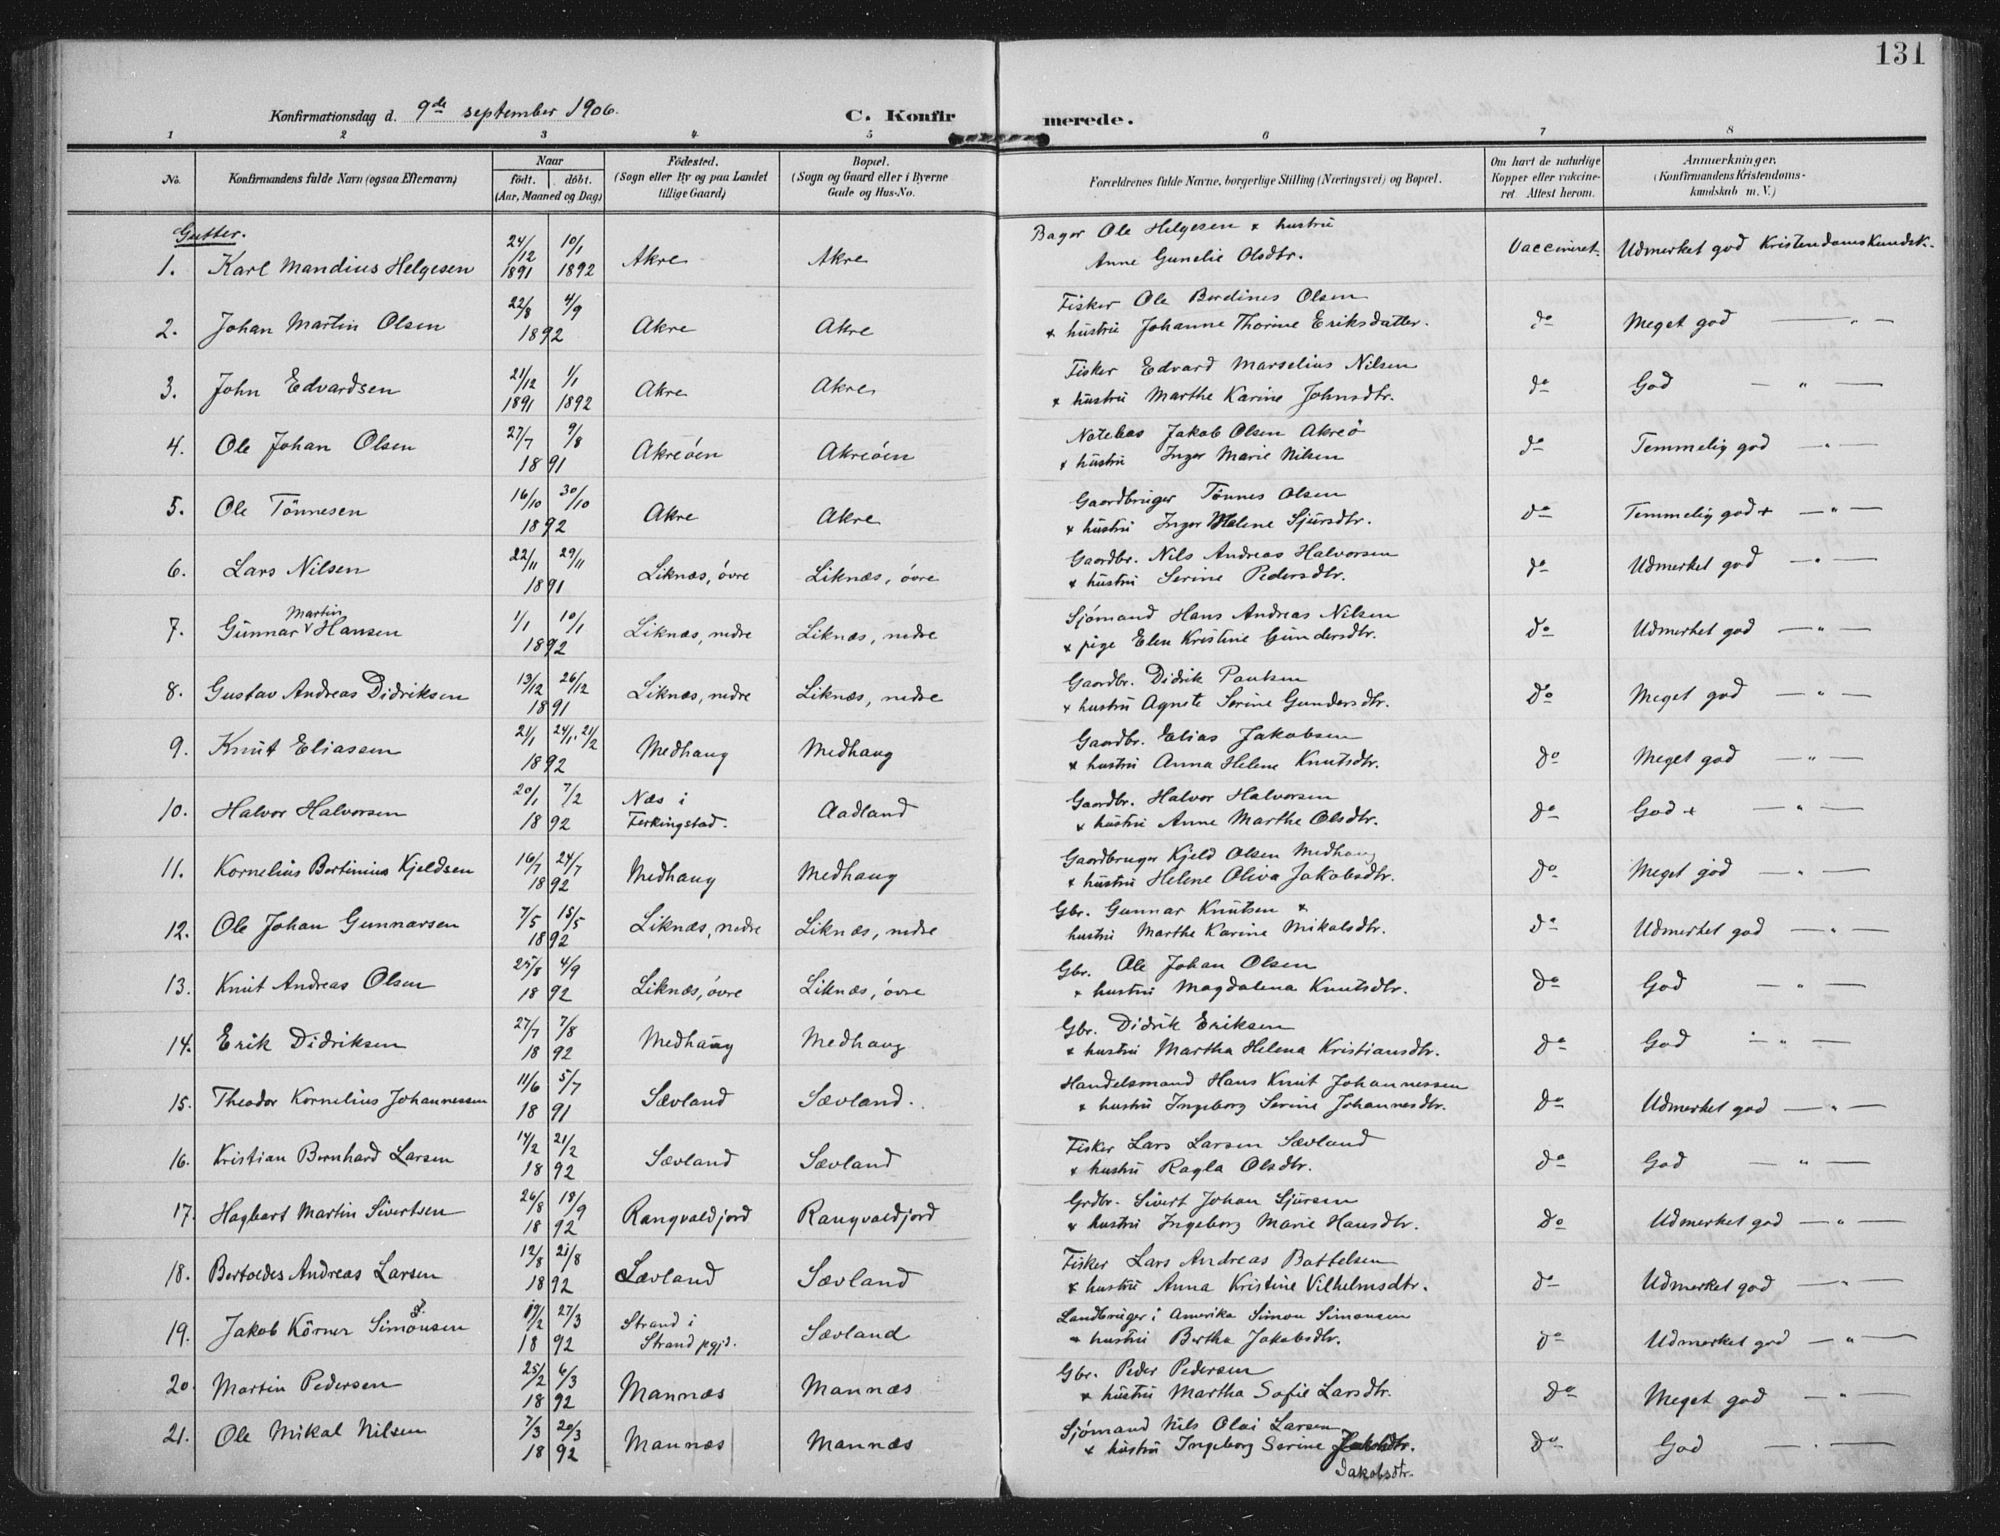 131
Konfirmationsdag d. 9de september 1906.
C. Konfirmerede.
1 2 3 4 5 6 7 8
No. Konfirmandens fulde Navn (ogsaa Efternavn) Naar født. døbt. (Aar, Maaned og Dag) Fødested. (Sogn eller By og paa Landet tillige Gaard) Bopæl. (Sogn og Gaard eller i Byerne Gade og Hus-No. Forældrenes fulde Navne, borgerlige Stilling (Næringsvei) og Bopæl. Om havt de naturlige Kopper eller vakcineret. Attest herom. Anmærkninger. (Konfirmandens Kristendomskundskab m. V.)
Gutter.
1. Karl Mandius Helgesen 24/12 1891 10/1 1892 Akre Akre Bager Ole Helgesen & hustru
Anne Gunelie Olsdtr. Vaccineret. Udmerket god Kristendomskundsk.
2. Johan Martin Olsen 22/8 4/9 1892 Akre Akre Fisker Ole Berdines Olsen
& hustru Johanne Thorine Eriksdatter. do Meget god — " —
3. John Edvardsen 21/12 1891 1/1 1892 Akre Akre Fisker Edvard Marselius Nilsen
& hustru Marthe Karine Johnsdtr. do God — " —
4. Ole Johan Olsen 27/7 9/8 1891 Akreöen Akreöen Notebas Jakob Olsen Akreö
& hustru Inger Marie Nilsen do Temmelig god — " —
5. Ole Tönnesen 16/10 30/10 1892 Akre Akre Gaardbruger Tönnes Olsen
& hustru Inger Malene Sjursdtr. do Temmelig god + — " —
6. Lars Nilsen 22/11 29/11 1891 Liknæs, övre Liknæs, övre Gaardbr. Nils Andreas Halvorsen
& hustru Serine Pedersdtr. do Udmerket god — " —
7. Gunnar Martin Hansen 1/1 10/1 1892 Liknæs, nedre Liknæs, nedre Sjömand Hans Andreas Nilsen
& pige Elen Kristine Gundersdtr. do Udmerket god — " —
8. Gustav Andreas Didriksen 13/12 26/12 1891 Liknæs, nedre Liknæs, nedre Gaardbr. Didrik Paulsen
& hustru Agnete Serine Gundersdtr. do Meget god — " —
9. Knut Eliassen 21/1 24/1. 21/2 1892 Medhaug Medhaug Gaardbr. Elias Jakobsen
& hustru Anna Helene Knutsdtr. do Meget god — " —
10. Halvor Halvorsen 20/1 7/2 1892 Næs i Ferkingstad. Aadland Gaardbr. Halvor Halvorsen
& hustru Anne Marthe Olsdtr. do God + — " —
11. Kornelius Bertinius Kjeldsen 16/7 24/7 1892 Medhaug Medhaug Gaardbruger Kjeld Olsen Medhaug
& hustru Helene Oliva Jakobsdtr. do Meget god — " —
12. Ole Johan Gunnarsen 7/5 15/5 1892 Liknæs, nedre Liknæs, nedre Gbr. Gunnar Knutsen &
hustru Marthe Karine Mikalsdtr. do Udmerket god — " —
13. Knut Andreas Olsen 25/8 4/9 1892 Liknæs, övre Liknæs, övre Gbr. Ole Johan Olsen
& hustru Magdalena Knutsdtr. do God — " —
14. Erik Didriksen 27/7 7/8 1892 Medhaug Medhaug Gbr. Didrik Eriksen
& hustru Martha Helena Kristiansdtr. do God — " —
15. Theodor Kornelius Johannessen 11/6 5/7 1891 Sævland Sævland. Handelsmand Hans Knut Johannessen
& hustru Ingeborg Serine Johannesdtr. do Udmerket god — " —
16. Kristian Bernhard Larsen 14/2 21/2 1892 Sævland Sævland Fisker Lars Larsen Sævland
& hustru Ragla Olsdtr. do God — " —
17. Hagbart Martin Sivertsen 26/8 18/9 1892 Rangvaldjord Rangvaldjord Grdbr. Sivert Johan Sjursen
& hustru Ingeborg Marie Hansdtr. do Udmerket god — " —
18. Bertoedes Andreas Larsen 12/8 21/8 1892 Sævland Sævland Fisker Lars Andreas Bottelsen
& hustru Anna Kristine Vilhelmsdtr. do Udmerket god — " —
19. Jakob Körner Simonsen 19/2 27/3 1892 Strand i Strand pgjd. Sævland Landbruger i Amerika Simon Simonsen
& hustru Bertha Jakobsdtr. do Udmerket god — " —
20. Martin Pedersen 25/2 6/3 1892 Mannæs Mannæs Gbr. Peder Pedersen
& hustru Martha Sofie Larsdtr. do Meget god — " —
21. Ole Mikal Nilsen 7/3 20/3 1892 Mannæs Mannæs Sjömand Nils Olai Larsen
& hustru Ingeborg Serine Jakobsdtr. do God — " —